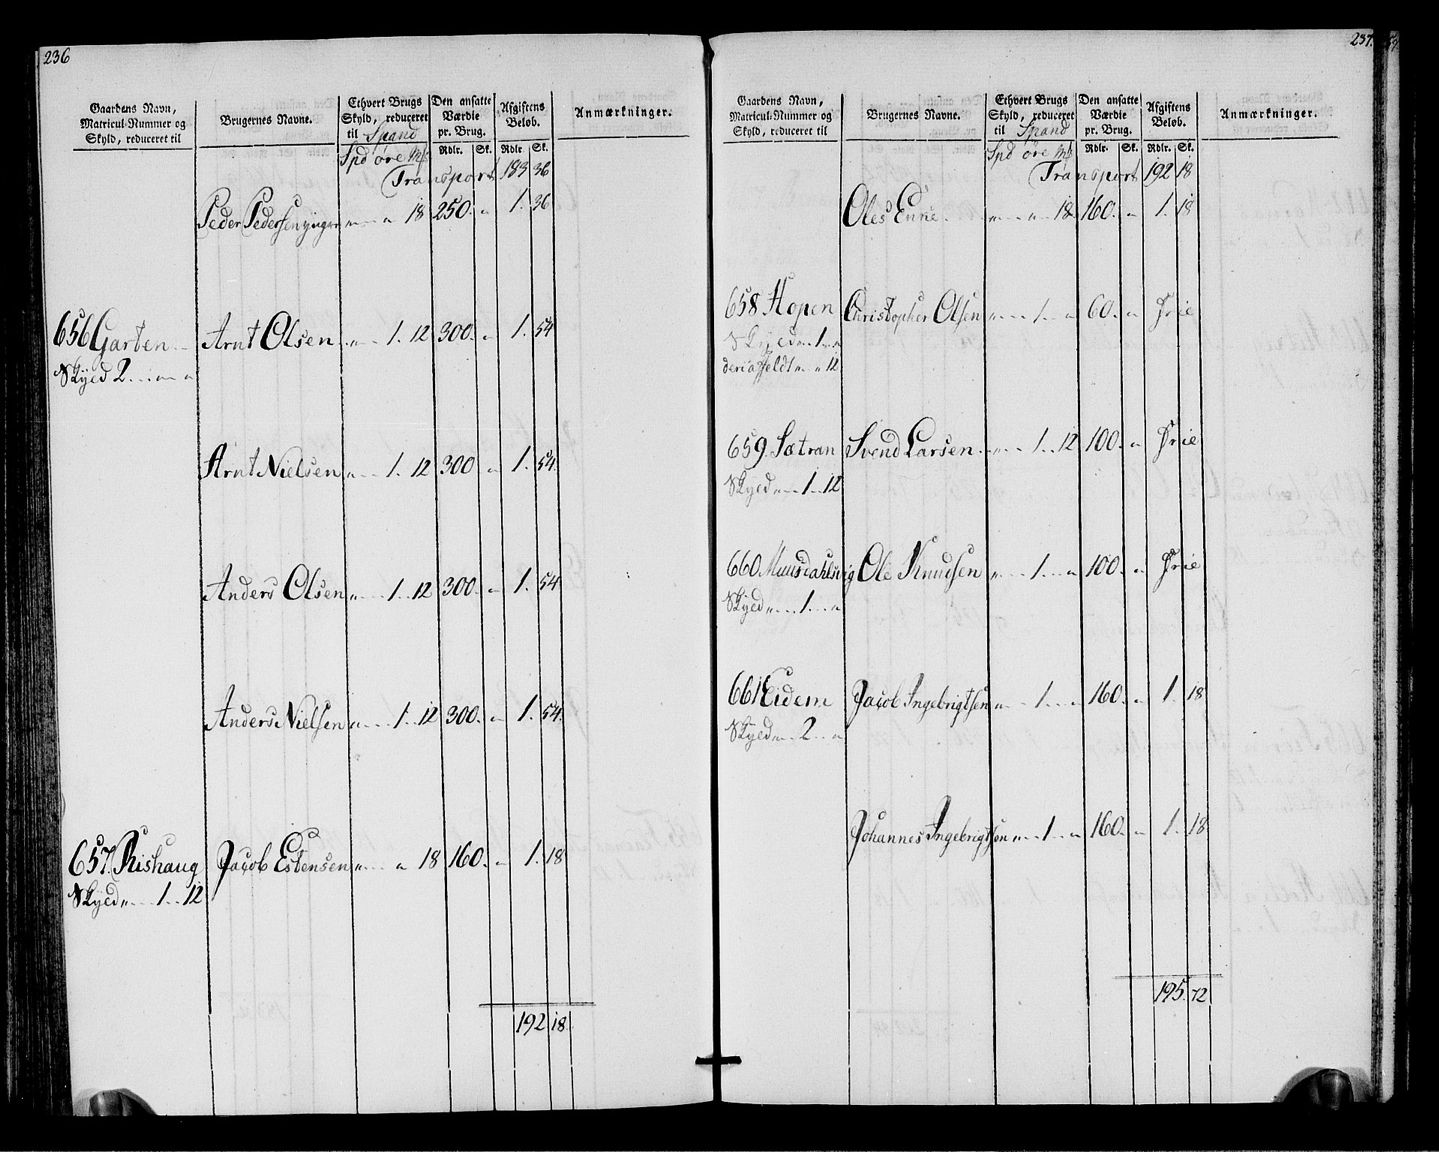 236
Gaardens Navn, Matricul-Nummer og Skyld, reduceret til
Brugernes Navne.
Ethvert Brugs Skyld, reduceret til Spand
Den ansatte Værdie pr. Brug.
Afgiftens Beløb.
Anmærkninger.
Spd øre
Rdlr. Sk. Rdlr. Sk.
Transport 183 36
Peder Pedersen yngre " " 18 250. " 1. 36
656 Garten Arnt Olsen " 1. 12 300. " 1. 54
Skyld 2 " "
Arnt Nielsen " 1. 12 300 " 1. 54
Anders Olsen " 1. 12 300. " 1. 54
Anders Nielsen " 1. 12 300. " 1. 54.
657. Rishaug Jacob Estensen " " 18 160. " 1. 18
Skyld " 1 12
192 18
237.
Gaardens Navn, Matricul-Nummer og Skyld, reduceret til
Brugernes Navne.
Ethvert Brugs Skyld, reduceret til Spand
Den ansatte Værdie pr. Brug.
Afgiftens Beløb.
Anmærkninger.
Spd øre
Rdlr. Sk. Rdlr. Sk.
Transport 192 18
Oles Enke " " 18 160. " 1. 18
658 Hopen Christopher Olsen " 1. " 60. " Frie
Skyld " 1 "
" " 12
659. Sætran Svend Larsen " 1. 12 100. " Frie
Skyld " 1. 12
660. Muusdahlsvig Ole Knudsen " 1. " 100. " Frie
Skyld " 1. "
661 Eidem Jacob Ingebrigtsen " 1. " 160. " 1. 18
Skyld " 2. "
Johannes Ingebrigtsen " 1. " 160. " 1. 18
195. 72